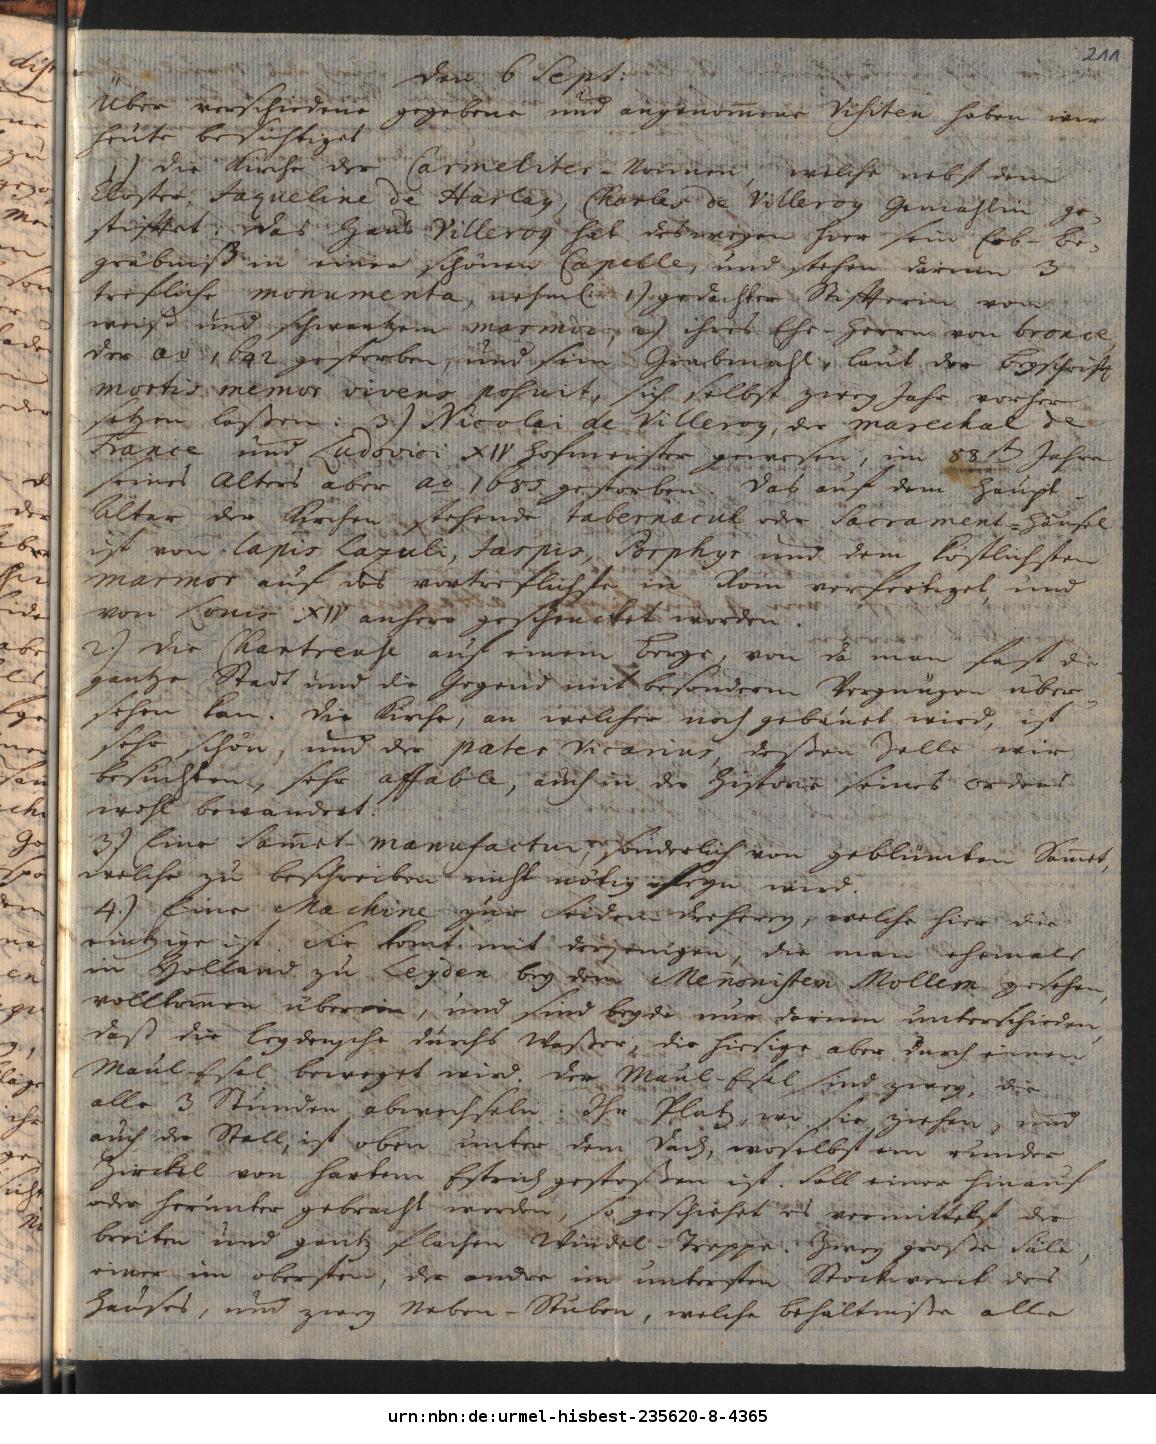 211
den 6 Sept:
Über verschiedene gegebene und angenom̄ene Visiten haben wir
heute besichtiget
1.) die Kirche der Carmeliter-Nonnen, welche nebst dem
Closter, Jaqueline de Harlay, Charles de Villeroy Gemahlin ge-
stifftet. Das Hauß Villeroy hat deswegen hier sein Erb-be-
gräbniß in einer schönen Capelle, und stehen darinn 3
trefliche monumenta, nehml: 1) gedachter Stiffterin von
weiß und schwartzem marmor, 2) ihres Ehe-Herrn von bronce,
der ao 1642 gestorben, und sein Grabmahl, laut der Beyschrifft
mortis memor vivens posuit, sich selbst zwey Jahr vorher
setzen laßen: 3.) Nicolai de Villeroy, der marechal de
France und Ludovici XIV Hofmeister gewesen, im 88ten Jahre
seines Alters aber ao 1685 gestorben. Das auf dem Haupt-
Altar der Kirchen stehende tabernacul oder Sacrament-Häusel
ist von lapis Lazuli, Jaspis, Porphyr und dem köstlichsten
marmor auf das vortreflichste in Rom verfertiget, und
von Louis XIV anhero geschencket worden.
2.) Die Chartreuse auf einem Berge, von da man fast die
gantze Stadt und die Gegend mit besonderm Vergnügen über-
sehen kan. Die Kirche, an welcher noch gebauet wird, ist
sehr schön, und der pater Vicarius, deßen Zelle wir
besuchten, sehr affable, auch in der Historie seines Ordens
wohl bewandert.
3.) Eine Sam̄et-manufactur, sonderlich von geblümten Sam̄et,
welche zu beschreiben nicht nötig seyn wird.
4.) Eine Machine zur Seiden-Dreherey, welche hier die
eintzige ist. Sie komt mit derjenigen, die man ehemals
in Holland zu Leyden bey dem Menonisten Mollem gesehen,
vollkom̄en überein, und sind beyde nur darinn unterschieden,
daß die Leydensche durchs Waßer, die hiesige aber durch einen
Maul-Esel beweget wird. Der Maul-Esel sind zwey, die
alle 3 Stunden abwechseln. Ihr Platz, wo sie ziehen, und
auch der Stall, ist oben unter dem Dach, woselbst ein runder
Zirckel von hartem Estrich gestoßen ist. Soll einer hinauf
oder herunter gebracht werden, so geschiehet es vermittelst der
breiten und gantz flachen Windel-Treppe. Zwey große Säle,
einer im obersten, der andre im untersten Stockwerck des
Hauses, und zwey Neben-Stuben, welche Behältniße alle
urn:nbn:de:urmel-hisbest-235620-8-4365